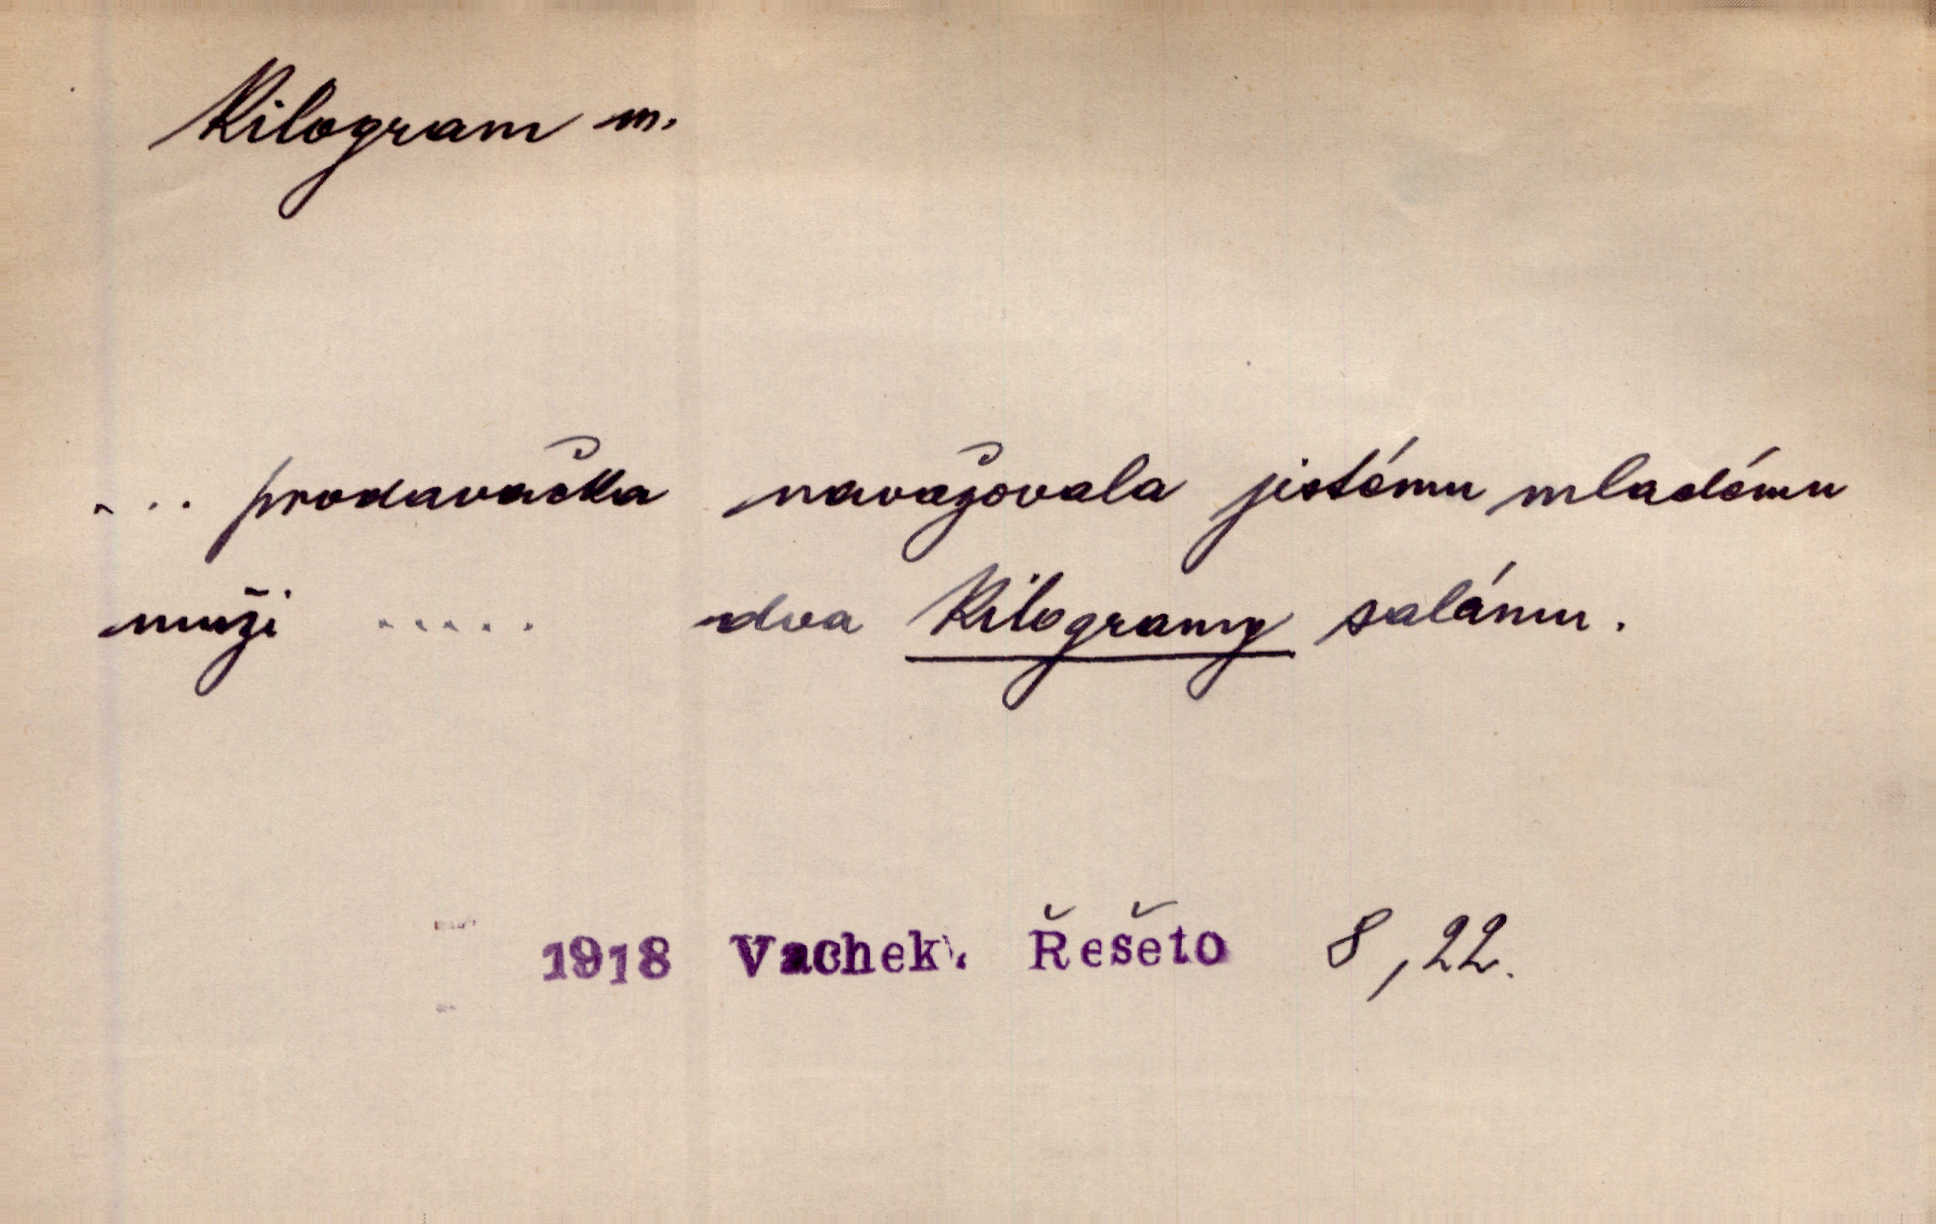 kilogram m.
... prodavačka navažovala jistému mladému
muži ..... dva kilogramy salámu.
1918 Vachek. Řešeto 8,22.